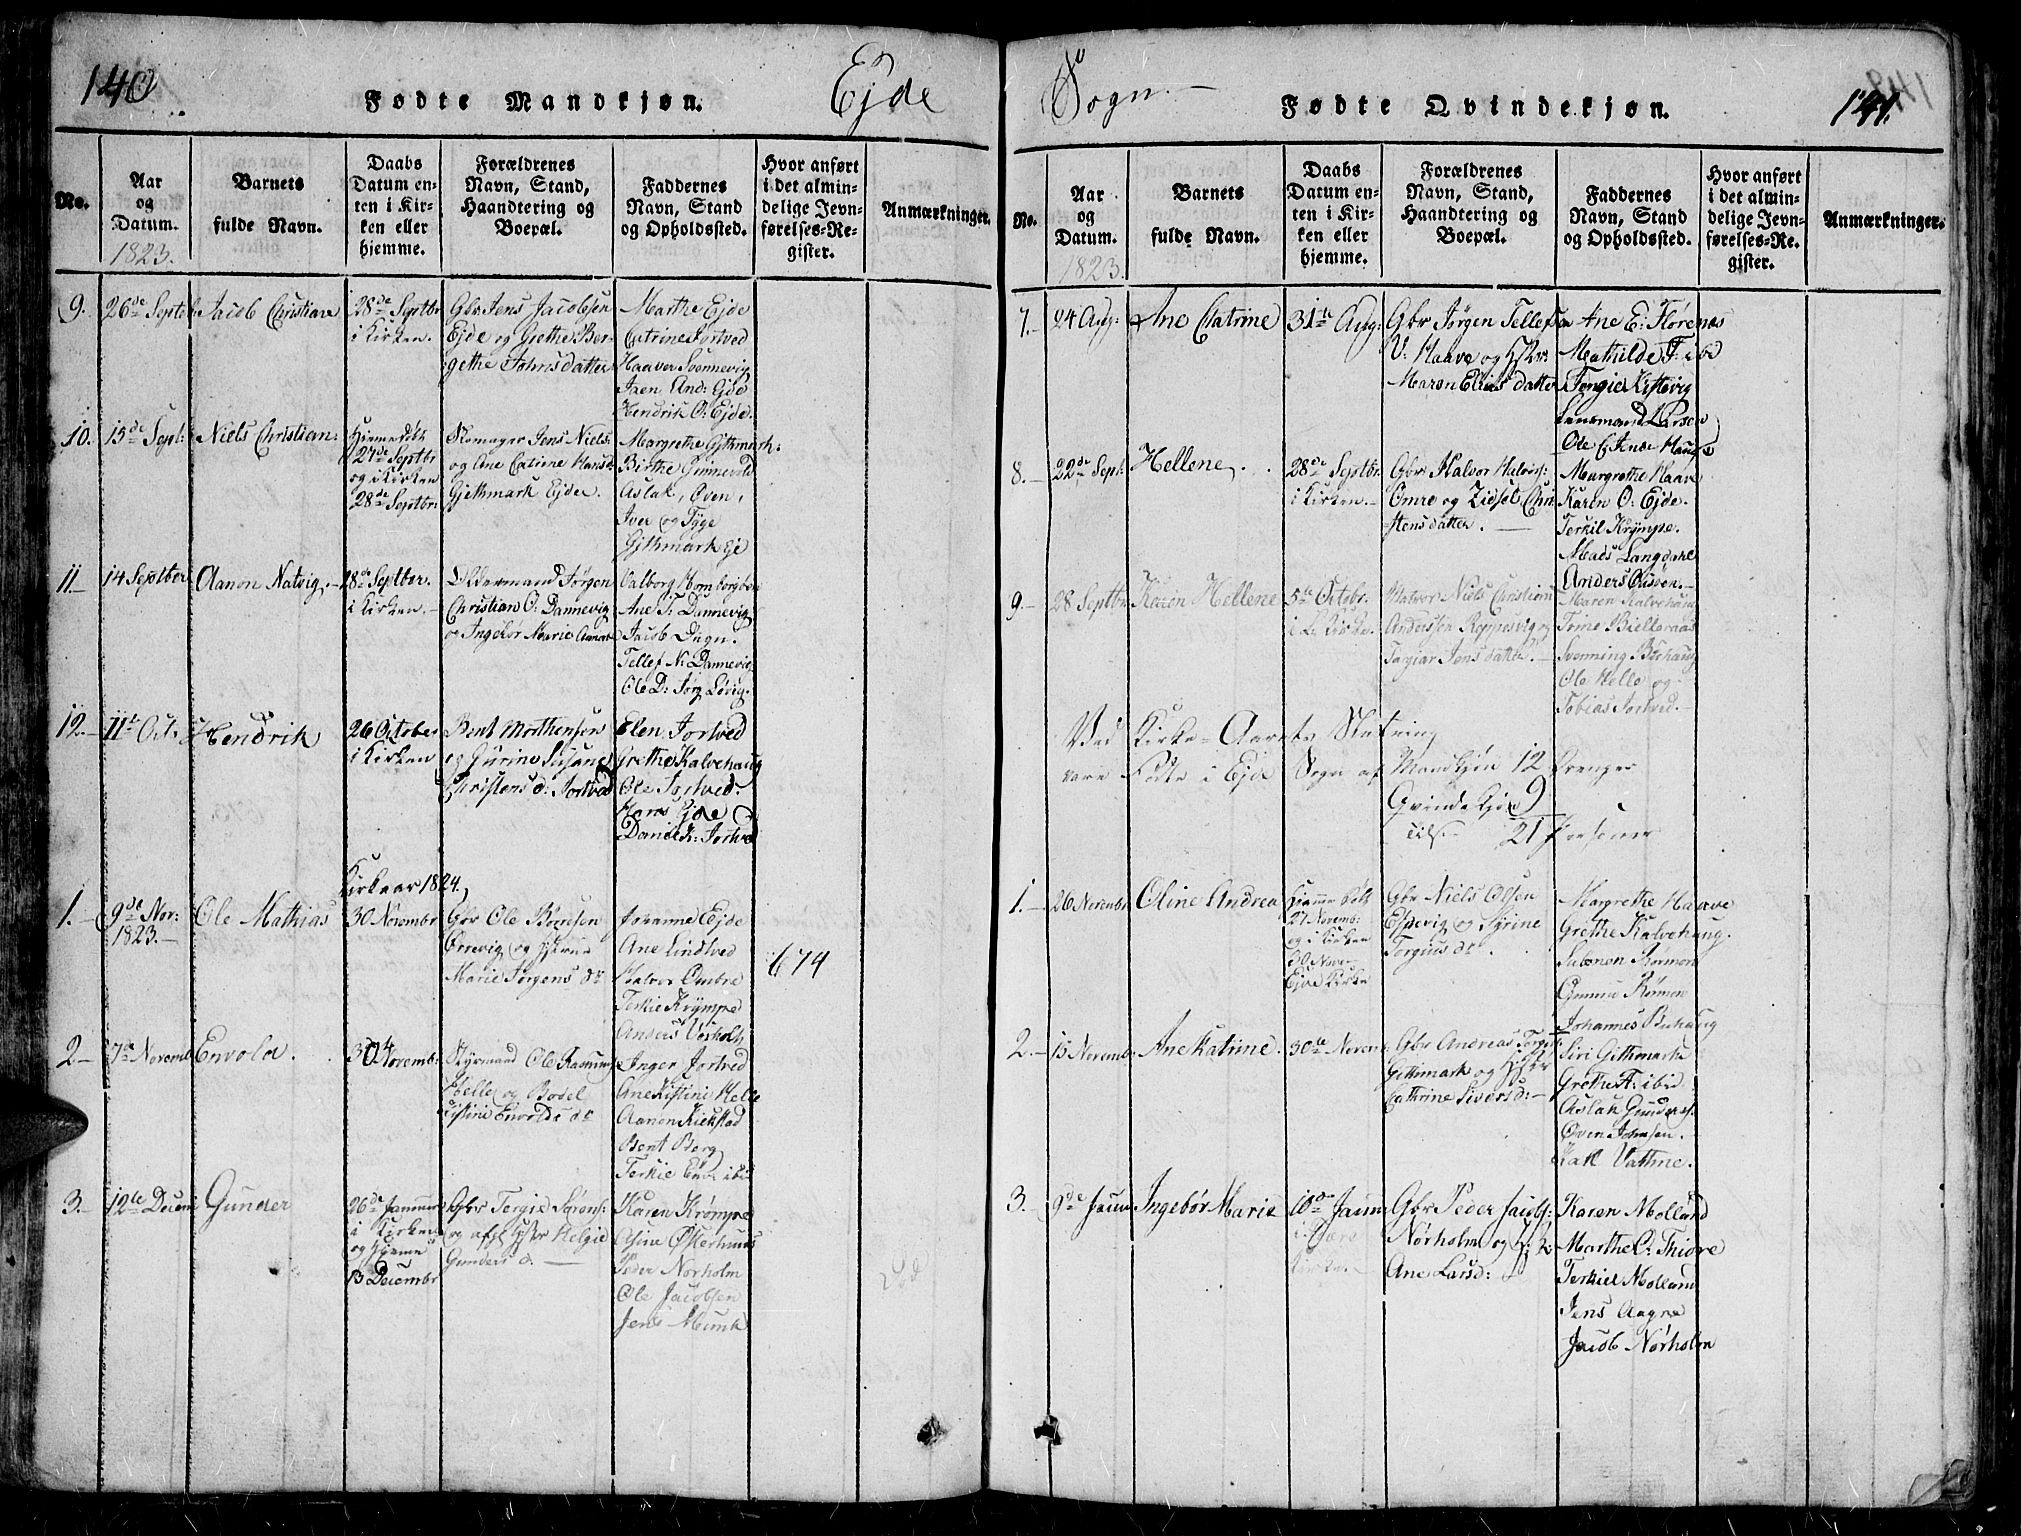 140
Fødte Mandkjøn.
Ejde
No.
Aar
og
Datum.
1823.
Barnets
fulde Navn.
Daabs
Datum en-
ten i Kir-
ken eller
hjemme.
Forældrenes
Navn, Stand,
Haandtering og
Boepæl.
Faddernes
Navn, Stand
og Opholdssted.
Hvor anført
i det almin-
delige Jevn-
førelses-Re-
gister.
Anmærkninger.
9.
26de Septb
Jacob Christian
28de Septbr
i Kirken.
Gbr Jens Jacobsen
Ejde og Grethe Ber-
gethe Johnsdatter
Marthe Ejde
Catrine Jortved
Haaver Svennevig
Jaen And: Ejde
Hendrik O: Ejde.
10.
15de Sept:
Niels Christian
Hjemmedøbt
27de Septbr
og i Kirken
28de Septbr:
Skomager Jens Niels:
og Ane Catrine Hansd
Gjethmark Ejde.
Margrethe Gjthmark:
Birthe Gunnevold
Aslak, Oven,
Iver og Tyge
Gjthmark Eje
11.
14 Septber
Aanon Natvig.
28de Septber.
i Kirken.
Christian O: Dannevig
og Ingebør Marie Aanon
Valborg Homborgben
Ane T: Dannevig
Jacob Dugn.
Tellef N: Dannevig
Ole D: Jørg Lørig.
12.
11te Oct:
Hendrik
26 October
i Kirken
Bent Morthensen
og Gurine Susane
Christens d: Jortved
Elen Jortved
Grethe Kalvehaug
Ole Jortved.
Hans Ejde
Daniel K: Jortved
Kirkeaar 1824.
1.
9de Nor:
1823.
Ole Mathias
30 Novembr
Gbr Ole Børresen
Ørrevig og Hustrue
Marie Jørgens dr
Johanne Ejde
Ane Lindtved
Halvor Ombre
Terkie Krømpe
Anders Vesholt
674
2
7de Novemb
Envold.
30te Novembr:
Styrmand Ole Rasmus
Helle og Bodel
Kistine Envolds dr
Inger Jortved
Ane Kistine Helle
Aanon Kiekstad
Bent Berg
Terkie Env: ibi
3.
12te Decem
Gunder
26de Januar
i Kirken
og hjeme
13 Decembr
Gbr Tergie Søren:
og afst Hstr Helgie
Gunders d.
Karen Krømpe
Asine Østerhuus
Peder Norholm
Ole Jacobsen
Jens Munk
Sogn.
Fødte Qvindekjøn.
141.
No.
Aar
og
Datum.
1823.
Barnets
fulde Navn.
Daabs
Datum en-
ten i Kir-
ken eller
hjemme.
Forældrenes
Navn, Stand,
Haandtering og
Boepæl.
Faddernes
Navn, Stand
og Opholdssted.
Hvor anført
i det almin-
delige Jevn-
førelses-Re-
gister.
Anmærkninger.
7.
24 Aug:
Ane Catrine
31te Aug:
Gbr Jørgen Tellefsen
V: Haave og Hstr:
Maren Elias datter
Ane E: Florenæs
Mathilde T: ibd
Tergie Kistevig
Lensmand Larsen
Ole C: Inde Haugn
8.
22de Sept:
Hellene.
28de Septbr.
i Kirken.
Gbr Halvor Halvors:
Omre og Zidsel Chri-
stensdatter.
Margrethe Haave
Karen O: Ejde.
Terkil Krømpe.
Mads Langdare
Anders Olsen.
9.
28 Septbr
Karen Hellene
5te Octobr.
i L: Kirke.
Matros Niels Christian
Anderssen Reppesvig og
Targier Jens datter.
Maren Kalvehaug
Trine Bielleraas
Svenning Buhaug
Ole Helle og
Tobias Jortved.
Ved Kirke-Aarets Slutning
vare Fødte i Ejde Sogn af Mandkjøn 12 Drenger
Qvindekjøn 9
tils. 21 Personer
1.
26 Novembr
Oline Andrea
Hjemme døbt
27 Novemb:
og i Kirken
30 Novr
Ejde Kirke
Gbr Niels Olsen
Espevig og Syrine
Torgius dr.
Margrethe Haave
Grethe Kalvehaug.
Salomon Rørmon
Gunnu Rømen
Johannes Buhaug
2.
15 Novembr
Ane Katrine.
30te Novem:
Gbr Andreas Torgie
Githmark og Hstr
Cathrine Sivers d:
Siri Githmark
Grethe A: ibid
Aslak Gunders:
Øven Johnsen.
Karl Vathne.
3.
9de Janu
Ingebør Marie
18de Janu
i Fiære
Kirke.
Gbr Peder Jacobs:
Norholm og H:k:
Ane Larsd:
Karen Molland
Marthe O: Thiøre
Terkiel Molland
Jens Aagre
Jacob Norholm